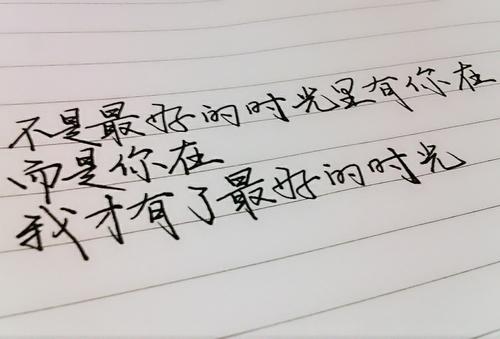 不是最好的时光里有你在
而是你在
我才有了最好的时光